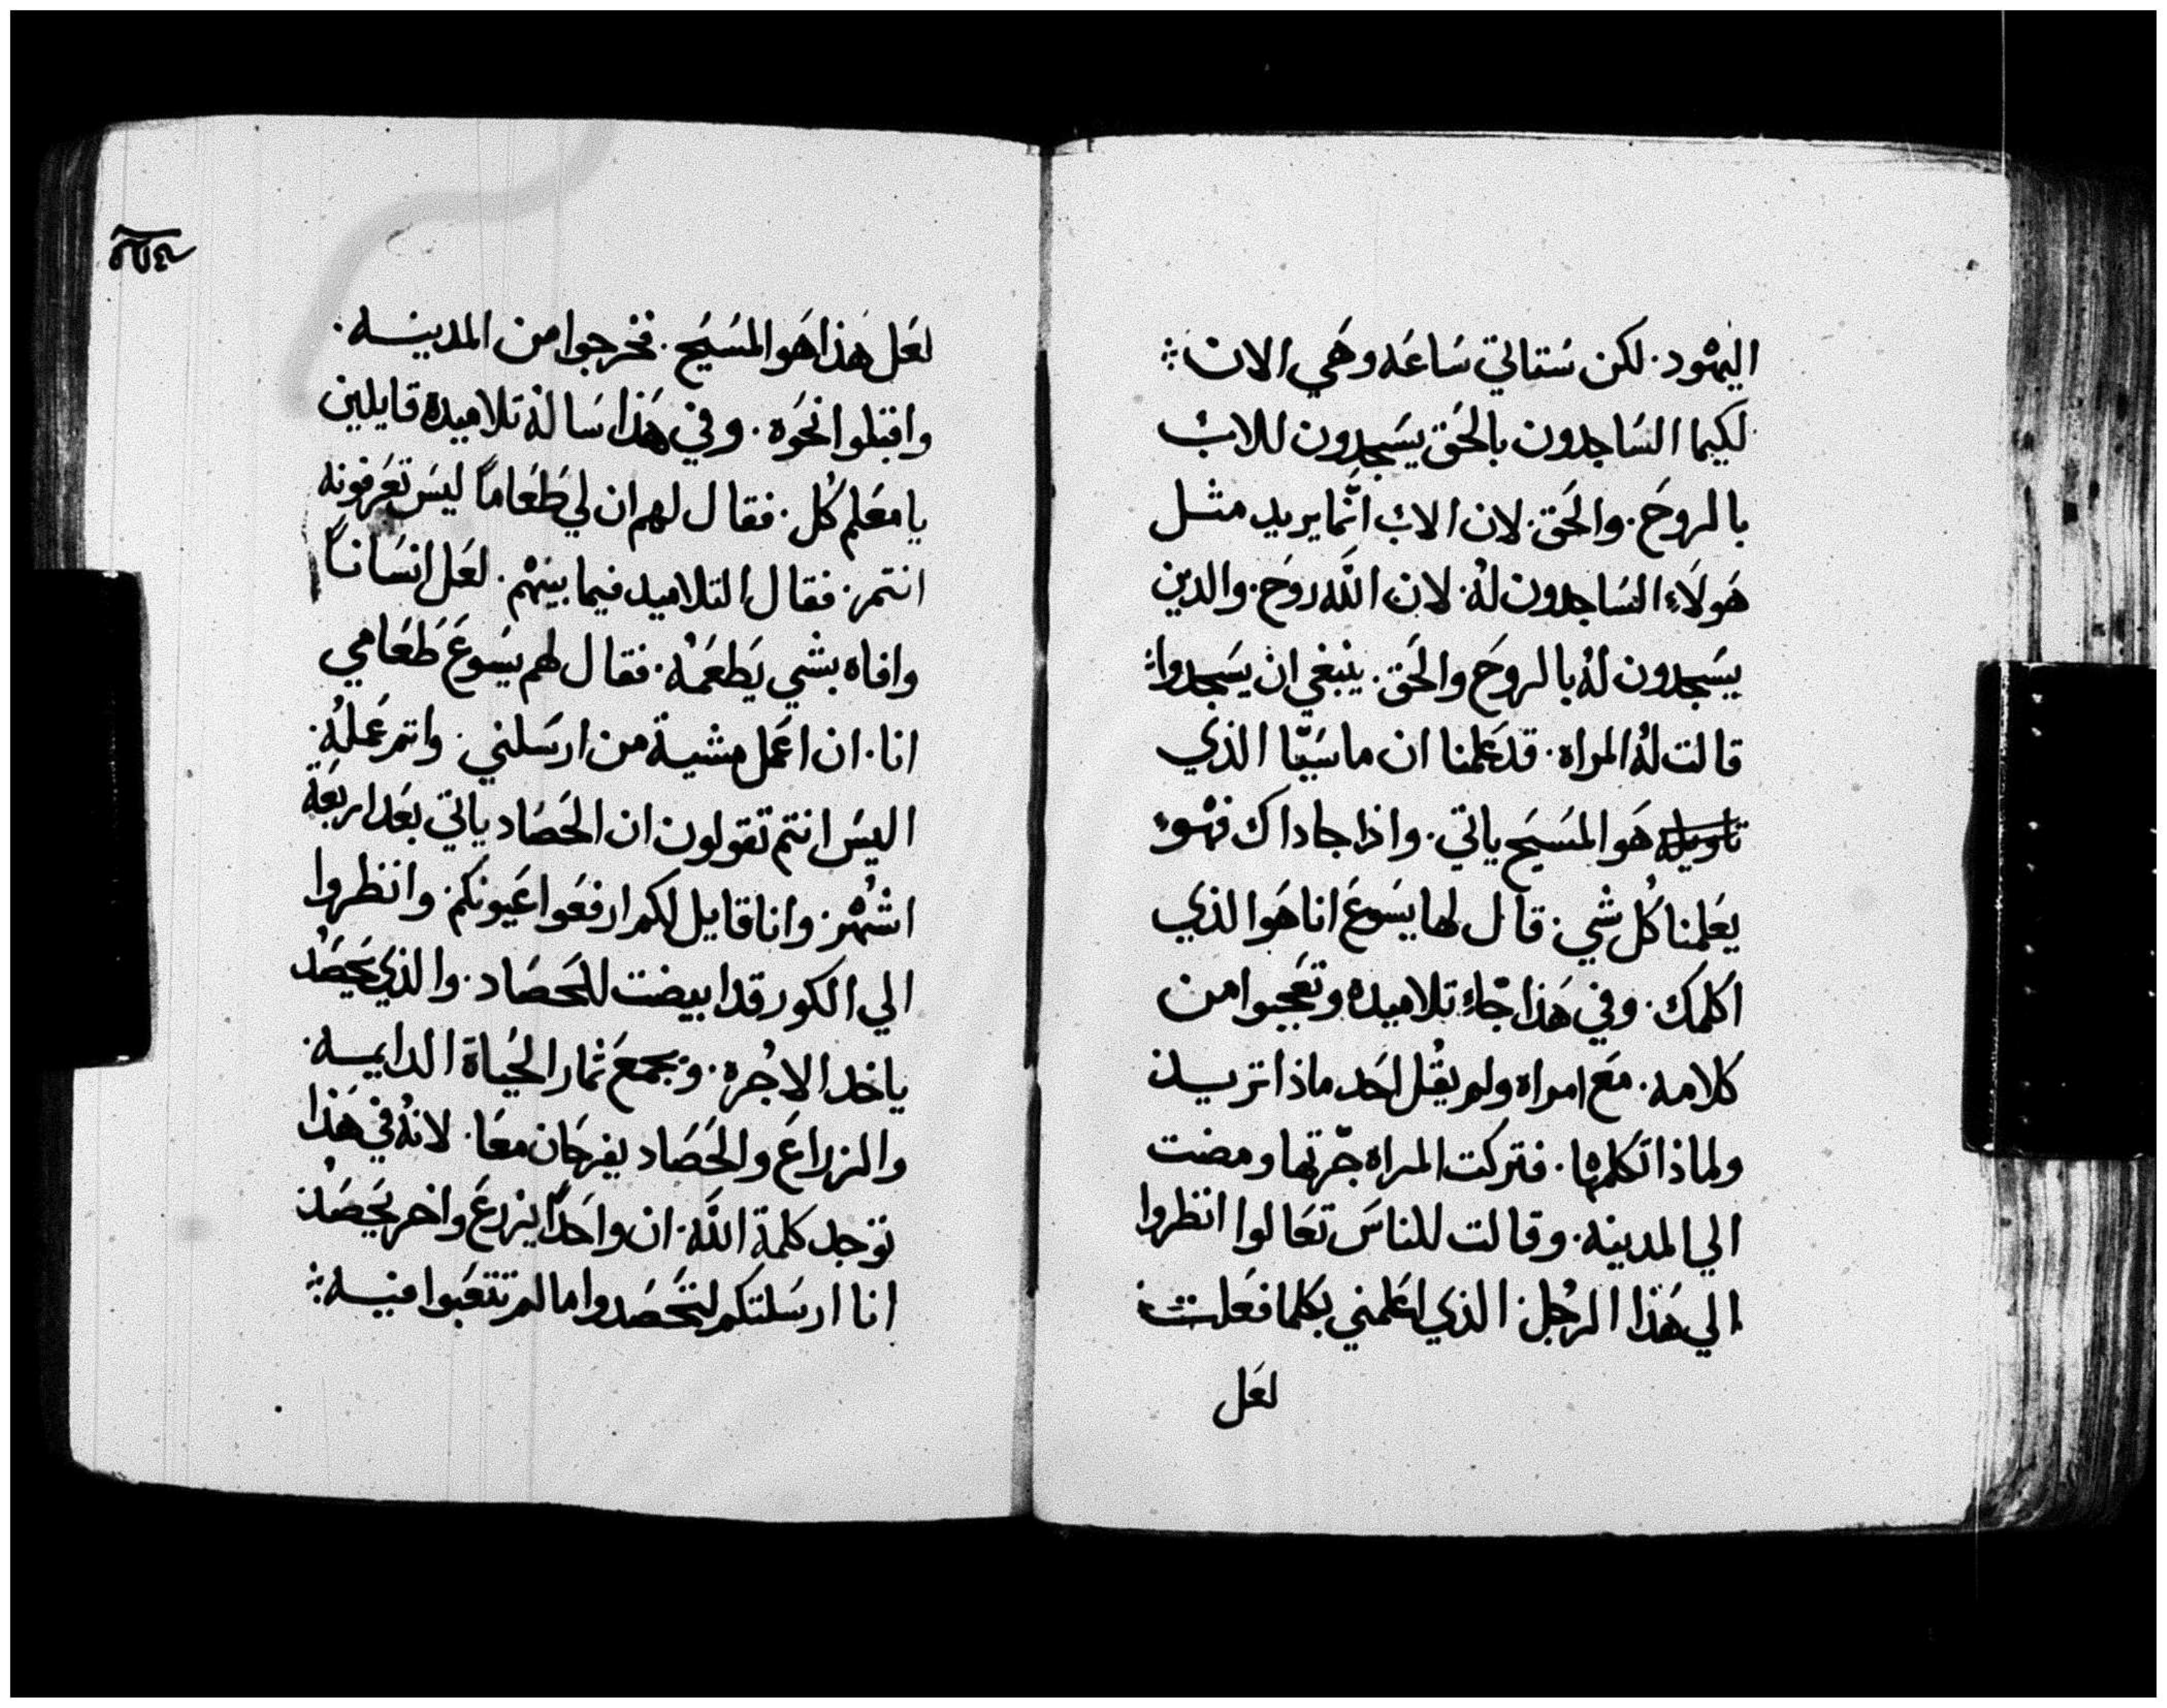 اليهود. لكن ستاتي سَاعَه وهَي الان ⁘
لكيما السَاجدون بالحَق يسَجدون للاب
بالروحَ. والحَق. لان الاب انَّما يريد مثل
هَولاَء السَاجدون لهُ. لان اللَّه روحَ. والدين
يسَجدون لهُ بالروحَ والحَق. ينبغي ان يسَجدوا⁘
قالت لهُ المراه. قد عَلمنا ان ماسَيَّا الذي
تاويله هَو المسَيح ياتي. واذا جا داك فهْو
يعَلمنا كُل شي. قال لها يسَوعَ انا هَو الذي
اكلمَك. وفي هَذا جَاء تلاميده وتعَجبوا من
كلامه. معَ امراه ولم يقُل احَد ماذا تريد
ولماذا تكلمها. فتركت المراه جرَّتها ومضت
الي المدينه. وقالت للناسَ تعَالوا انظروا
الي هَذا الرجُل. الذي اعَلمني بكلما فعَلت
لعَل
لعَل هَذا هَو المسَيَح. فخرجوا من المدينه.
واقبلوا نحَوه. وفي هَذا سَالهُ تلاميده قايلين
يا معَلم كُل. فقال لهم ان لي طَعَاماً ليسَ تعَرفونه
انتم. فقال التلاميد فيما بينهْم. لعَل انسَاناً
وافاه بشي يَطعَمهُ. فقال لهم يسَوعَ طَعَامي
انا. ان اعَمل مشية من ارسَلني. واتم عَملهُ.
اليسَ انتم تقولون ان الحَصَاد ياتي بعَد اربعَة
اشهُر. وانا قايل لكم ارفعَوا عَيونكم. وانظروا
الي الكور قد ابيضت للحَصَاد. والذي يحَصَدُ
ياخد الاجُره. ويجمعَ ثمار الحَياة الدايمه.
والزراعَ والحَصَاد يفرحَان معَا. لانهُ في هَذا
توجد كلمة اللَّه. ان واحَداً يزرعَ واخر يحَصَد
انا ارسَلتكم لتحَصَدوا ما لم تتعَبوا فيه⁘